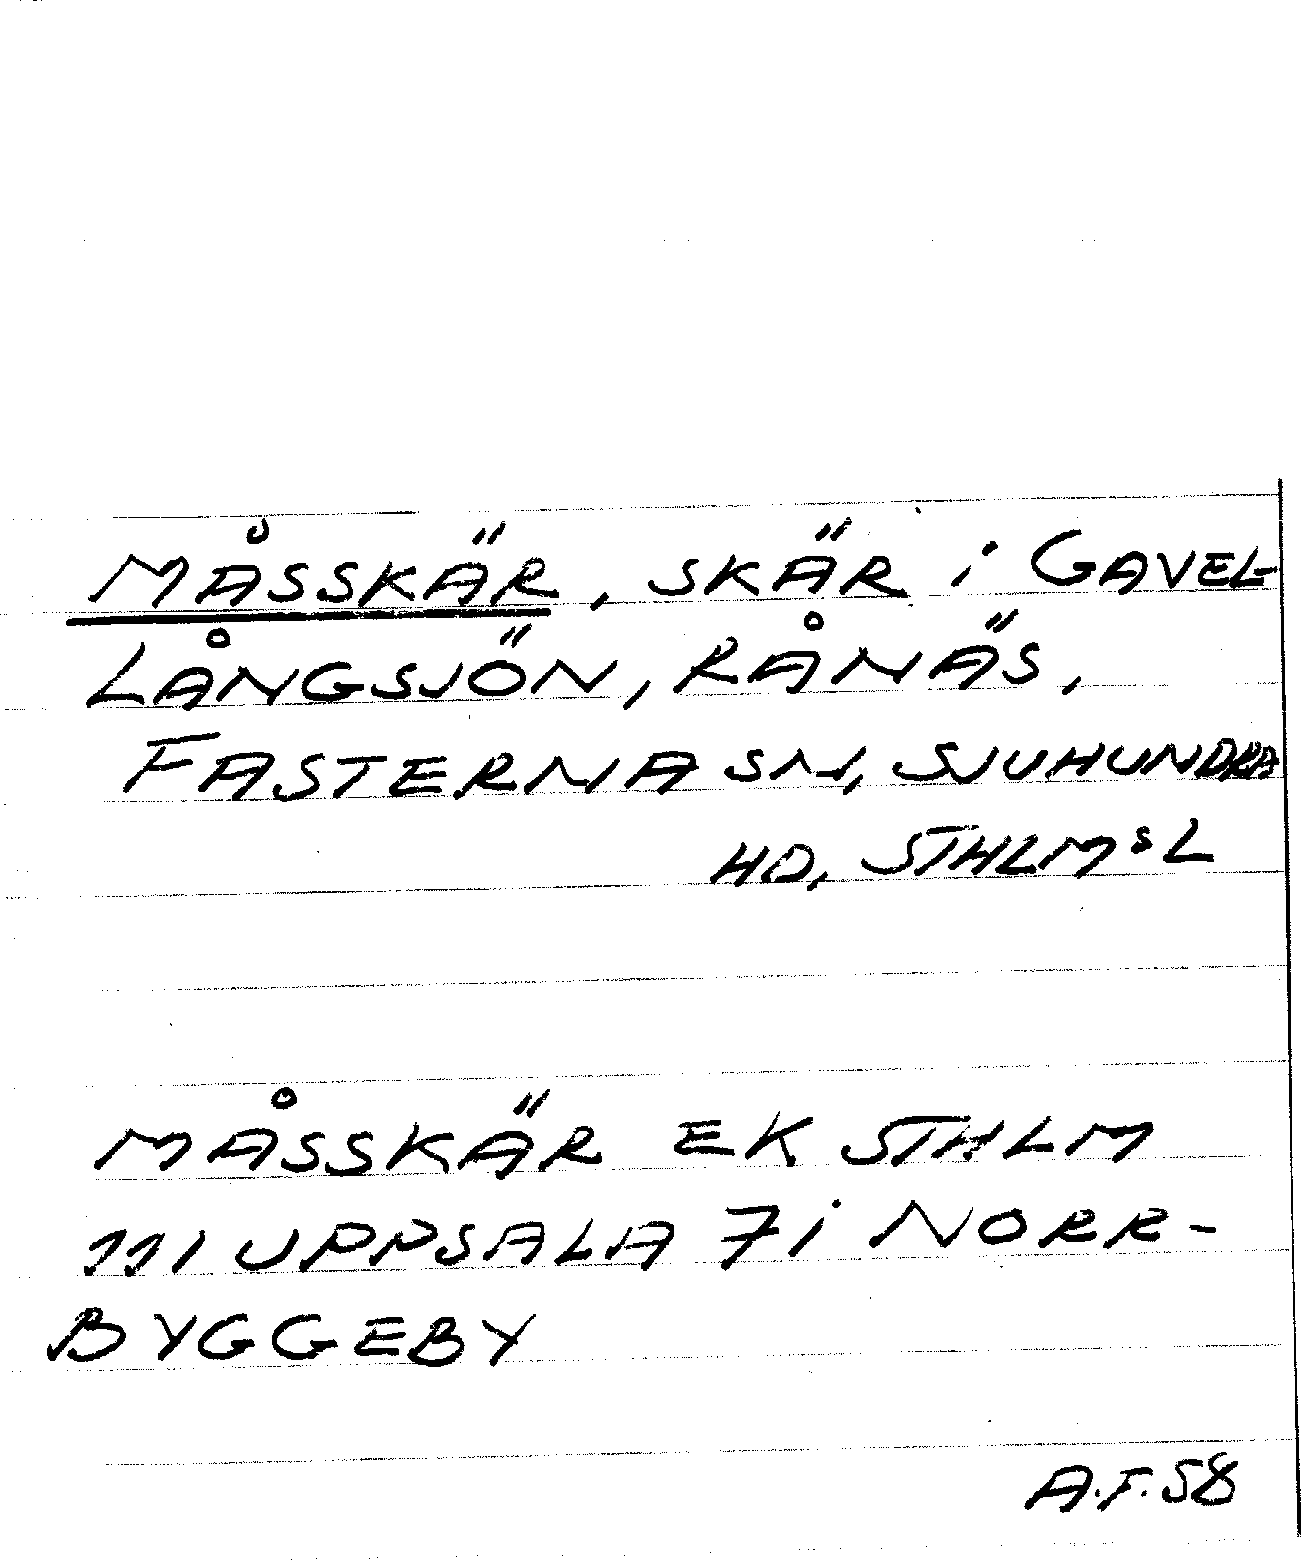 MÅSSKÄR, SKÄR i GAVEL-
LÅNGSJÖN, RÅNÄS,
FASTERNA SN, SJUHUNDRA
HD, STHLMS L
MÅSSKÄR EK STHLM
111 UPPSALA 7 i NORR-
BYGGEBY
A.F. 58